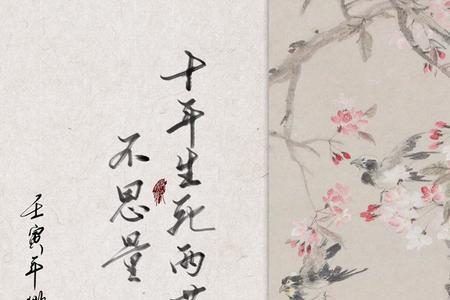 十年生死两
不思量
壬寅年